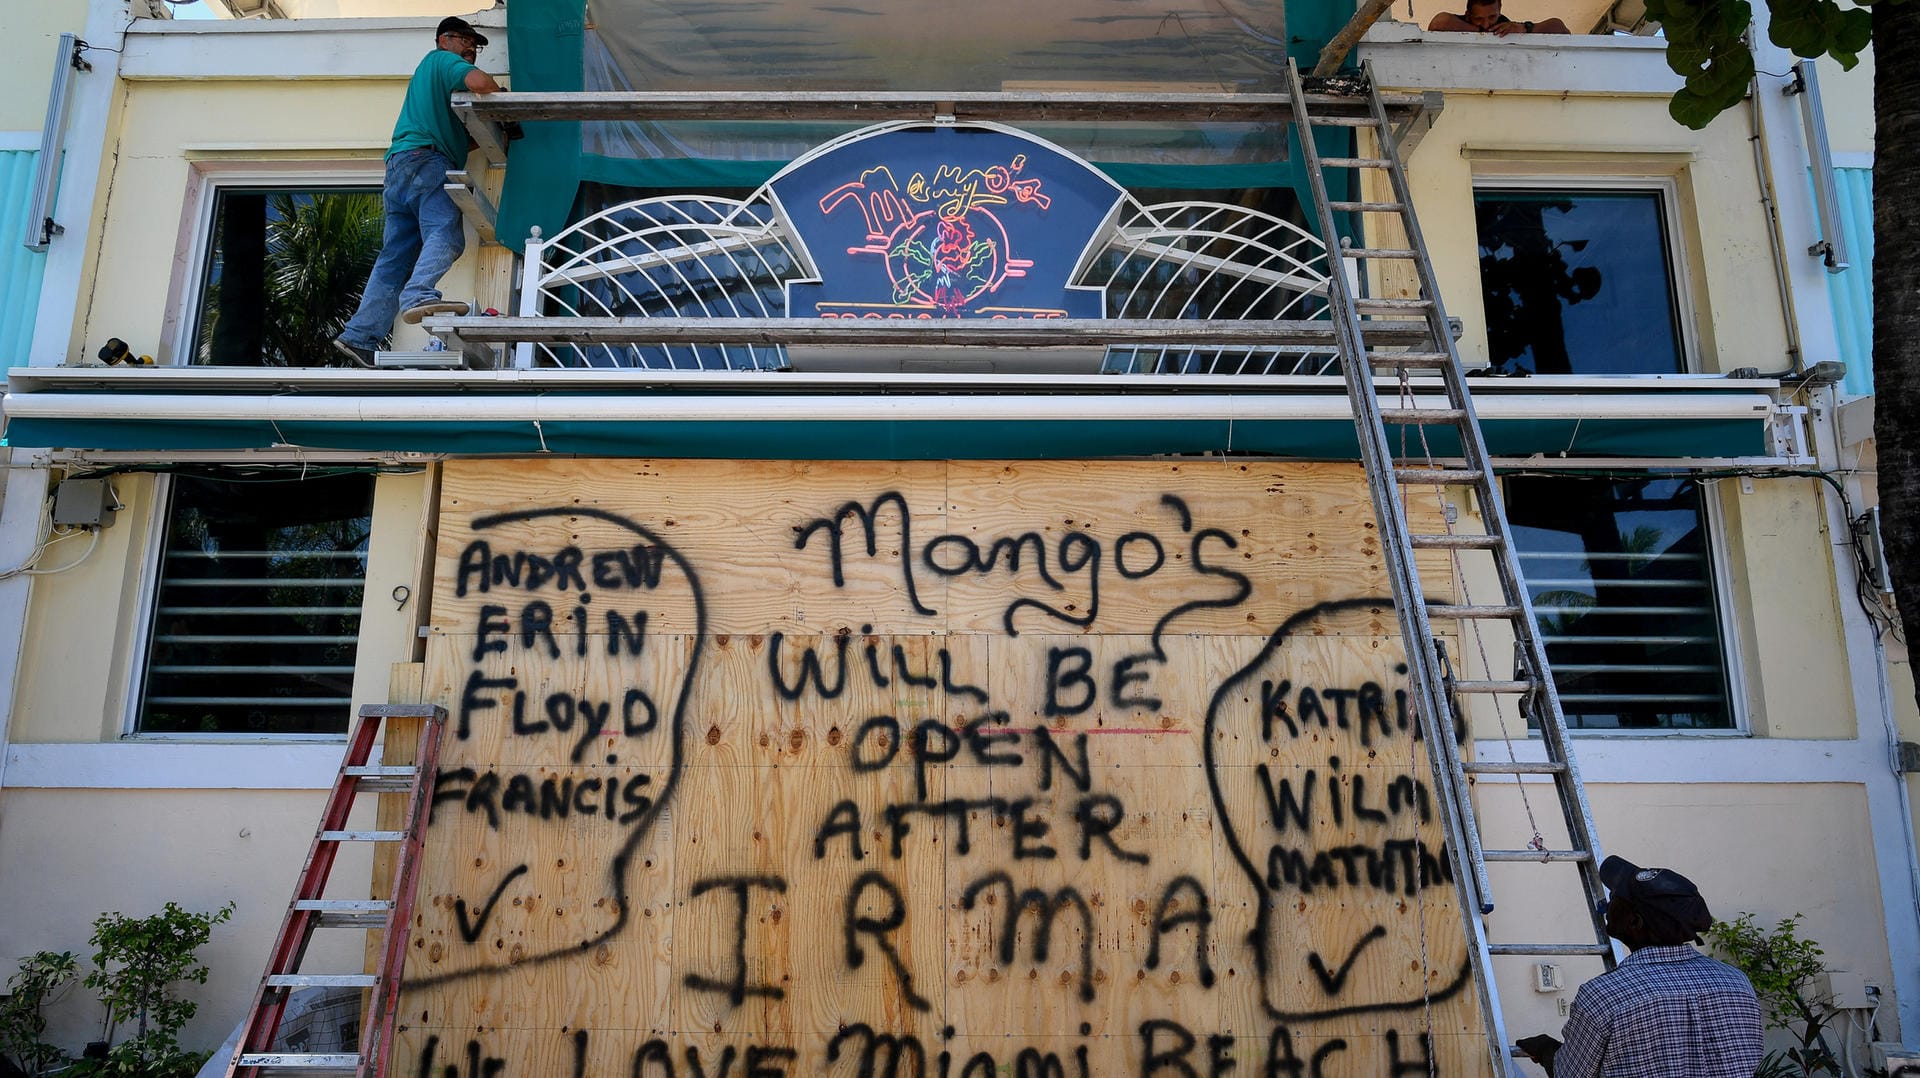 Mango's
TROPICAL CAFE
9
ANDREW
ERIN
FLOYD
FRANCIS
Mango's
WiLL BE
OPEN
AFTER
IRMA
KATRI
WiLM
We LOVE Miami BEACH